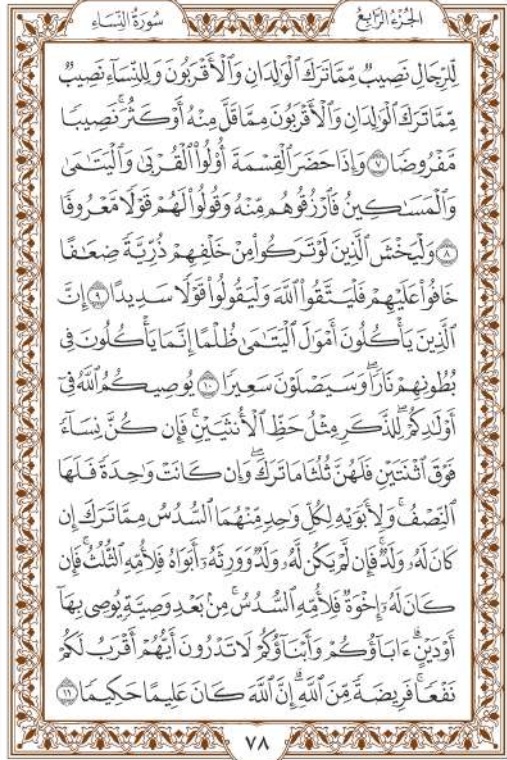 الجُزْءُ الرَّابِعُ
سُورَةُ النِّسَاءِ
لِّلرِّجَالِ نَصِيبٌ مِّمَّا تَرَكَ ٱلْوَٰلِدَانِ وَٱلْأَقْرَبُونَ وَلِلنِّسَآءِ نَصِيبٌ
مِّمَّا تَرَكَ ٱلْوَٰلِدَانِ وَٱلْأَقْرَبُونَ مِمَّا قَلَّ مِنْهُ أَوْ كَثُرَۚ نَصِيبًا
مَّفْرُوضًا ٧ وَإِذَا حَضَرَ ٱلْقِسْمَةَ أُوْلُواْ ٱلْقُرْبَىٰ وَٱلْيَتَٰمَىٰ
وَٱلْمَسَٰكِينُ فَٱرْزُقُوهُم مِّنْهُ وَقُولُواْ لَهُمْ قَوْلًا مَّعْرُوفًا
٨ وَلْيَخْشَ ٱلَّذِينَ لَوْ تَرَكُواْ مِنْ خَلْفِهِمْ ذُرِّيَّةً ضِعَٰفًا
خَافُواْ عَلَيْهِمْ فَلْيَتَّقُواْ ٱللَّهَ وَلْيَقُولُواْ قَوْلًا سَدِيدًا ٩ إِنَّ
ٱلَّذِينَ يَأْكُلُونَ أَمْوَٰلَ ٱلْيَتَٰمَىٰ ظُلْمًا إِنَّمَا يَأْكُلُونَ فِى
بُطُونِهِمْ نَارًاۖ وَسَيَصْلَوْنَ سَعِيرًا ١٠ يُوصِيكُمُ ٱللَّهُ فِىٓ
أَوْلَٰدِكُمْۖ لِلذَّكَرِ مِثْلُ حَظِّ ٱلْأُنثَيَيْنِۚ فَإِن كُنَّ نِسَآءً
فَوْقَ ٱثْنَتَيْنِ فَلَهُنَّ ثُلُثَا مَا تَرَكَۖ وَإِن كَانَتْ وَٰحِدَةً فَلَهَا
ٱلنِّصْفُۚ وَلِأَبَوَيْهِ لِكُلِّ وَٰحِدٍ مِّنْهُمَا ٱلسُّدُسُ مِمَّا تَرَكَ إِن
كَانَ لَهُۥ وَلَدٌۚ فَإِن لَّمْ يَكُن لَّهُۥ وَلَدٌ وَوَرِثَهُۥٓ أَبَوَاهُ فَلِأُمِّهِ ٱلثُّلُثُۚ فَإِن
كَانَ لَهُۥٓ إِخْوَةٌ فَلِأُمِّهِ ٱلسُّدُسُۚ مِنۢ بَعْدِ وَصِيَّةٍ يُوصِى بِهَآ
أَوْ دَيْنٍۗ ءَابَآؤُكُمْ وَأَبْنَآؤُكُمْ لَا تَدْرُونَ أَيُّهُمْ أَقْرَبُ لَكُمْ
نَفْعًاۚ فَرِيضَةً مِّنَ ٱللَّهِۗ إِنَّ ٱللَّهَ كَانَ عَلِيمًا حَكِيمًا ١١
٧٨